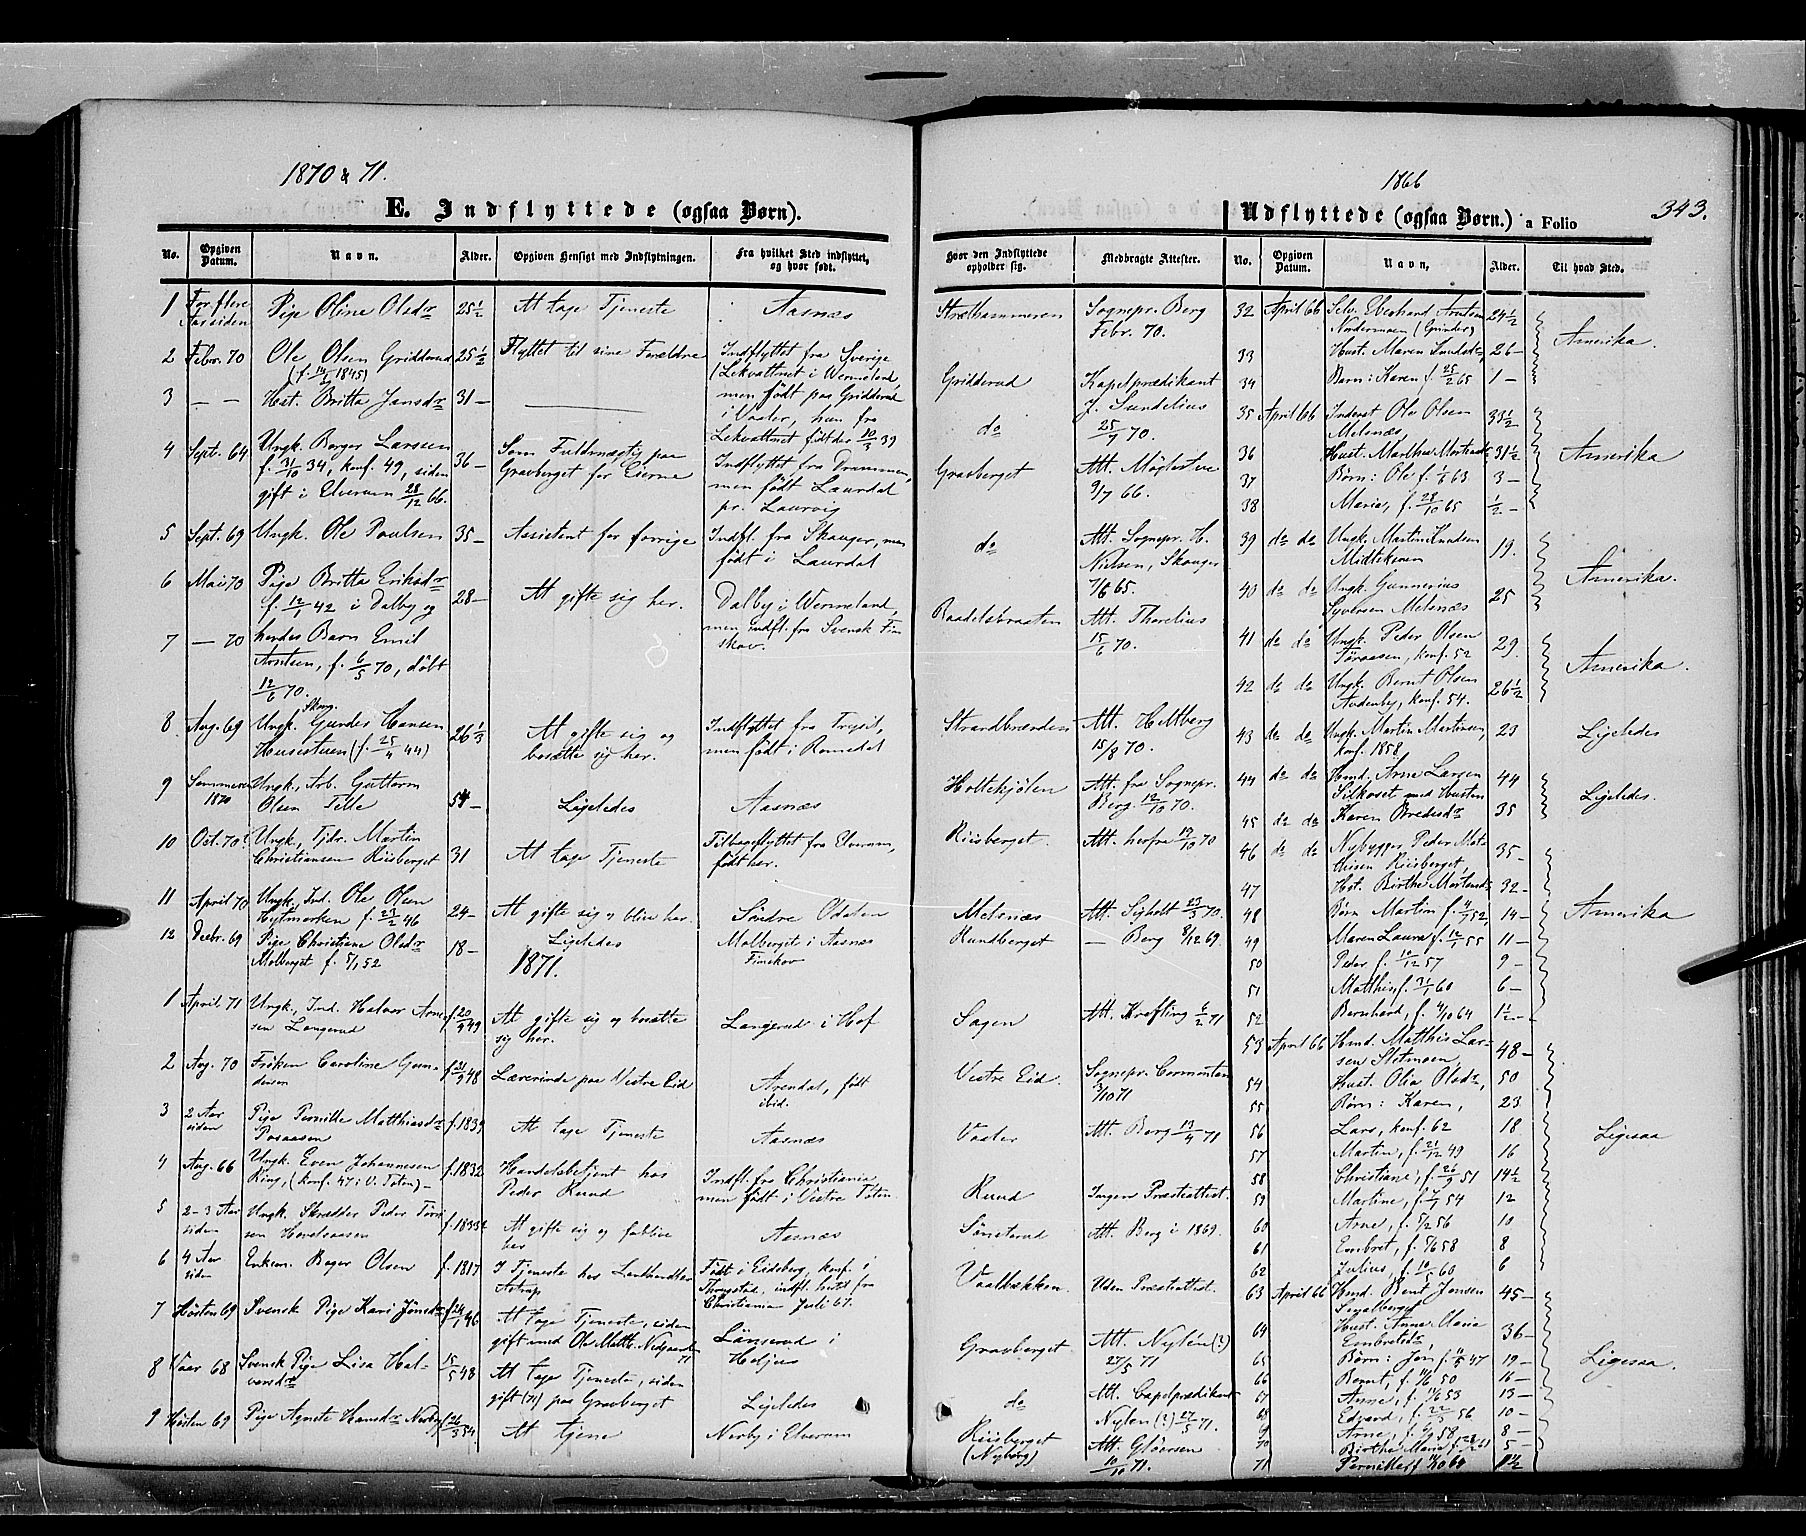 1870 & 71.
E. Indflyttede (ogsaa Børn).
No.
Opgiven Datum.
Navn.
Alder.
Opgiven Hensigt med Indflytningen.
Fra hvilket Sted indflyttet, og hvor født.
1 For flere Aar siden Pige Oline Olsdr 25½ At tage Tjeneste Aasnæs
2 Febr. 70 Ole Olsen Gridderud 25½ Flyttet til sine Forældre Indflyttet fra Sverige
(f. 1845) (Lekvattnet i Wermeland,
3 — — Hst. Britta Jansdr 31 — men født paa Gridderud
i Vaaler, hun fra
Lekvattnet født den 10/3 39
4 Sept. 64 Ungk. Borger Larssen 36 — Som Fuldmægtig paa Indflyttet fra Drammen,
f. 31/10 34, konf. 49, siden Gravberget for Eierne men født Laurdal
gift i Elverum 28/12 66. pr. Laurvig
5 Sept. 69 Ungk. Ole Poulsen 35 — Assistent for forrige Indfl. fra Skauger, men
født i Laurdal
6 Mai 70 Pige Britta Eriksdr 28 — At gifte sig her. Dalby i Wermeland,
f. 12/1 42 i Dalby og men indfl. fra Svensk Fin
7 — 70 hendes Barn Emil skov.
Arntsen, f. 6/5 70, døbt
12/6 70.
8 Aug. 69 Ungk. Skorg. Gunder Hansen 26⅓ At gifte sig og Indflyttet fra Trysil,
Husestuen (f. 25/4 44) bosætte sig her. men født i Romsdal
9 Sommeren 1870 Ungk., Arb. Guttorm 54 — Ligeledes Aasnæs
Olsen Telle
10 Oct. 70? Ungk, Tjdr. Martin 31 At tage Tjeneste Tilbageflyttet fra Elverum,
Christiansen Riisberget født her.
11 April 70 Ungk, Ind. Ole Olsen 24 — At gifte sig og blive her. Søndre Odalen
f. 23/2 46
12 Decbr. 69 Pige Christiane Olsdr 18 — Ligeledes Molberget i Aasnæs
Molberget f. 5/1 52 Finskov
1871.
1 April 71 Ungk, Ind. Halvor Arne- f. 20/9 49 At gifte sig og bosætte Langerud i Hof
sen Langerud sig her.
2 Aug. 70 Frøken Caroline Gun- f. 21/9 48 Lærerinde paa Vestre Eid Arendal, født
dersen ibid.
3 2 Aar siden Pige Pernille Matthiasdr f. 1839 At tage Tjeneste Aasnæs
Posaasen
4 Aug. 66 Ungk. Even Johannesen f. 1832 Handelsbetjent hos Indfl. fra Christiania
Ring, (konf. 47 i V. Toten) — Peder Ruud men født i Vestre Toten
5 2-3 Aar siden Ungk. Skrædder Peder f. 1833 At gifte sig og forblive Aasnæs
her
6 4 Aar siden Enkem. Beger Olsen f. 1817 I Tjeneste hos Lenthandler Født i Eidsberg, konf. i
Astrup Thrygstad, indfl. hid fra
Christiania Juli 67.
7 Høsten 69 Svensk Pige Kari Jønsdr f. 24/1 46 At tage Tjeneste, siden Lønserud i
gift med Ole Matth. Nedgaarden 71 Holjes
8 Vaar 68 Svensk Pige Lisa Hal- 15/5 48 At tage Tjeneste, siden Ligeledes
vorsdr gift (71) paa Gravberget
9 Høsten 69 Pige Agnete Hansdr Nerby f. 26/3 54 At tjene Nerby i Elverum
1866
Udflyttede (ogsaa Børn.) a Folio
343.
Hvor den Indflyttede opholder sig.
Medbragte Attester.
No.
Opgiven Datum.
Navn,
Alder.
Til hvad Sted.
Strælhammeren Sognepr. Berg Febr. 70.
Gridderud Kapelprædikant J. Sundelius
do 25/7 70.
Gravberget Att. Møglestue 9/7 66.
do Att. Sognepr. H. Nielsen, Skauger 7/6 65.
Baadelsbraaten Att. Thorelius 15/6 70.
Strandbrænden Att. Heltberg 15/8 70.
Holtekjølen Att. fra Sognepr. Berg 12/10 70.
Riisberget. Att. herfra 19/10 70
Melsnæs Att. Sigholt 23/3 70.
Rundberget — Berg 8/12 69.
Sagen Att. Krefting 6/2 71
Vestre Eid. Sognepr. Cormontan 3/10 71
Vaaler Att. Berg 13/4 71
Ruud Ingen Præsteattest.
Sønsterud Att. Berg i 1869.
Vaalbakken. Uden Præsteattest.
Gravberget Att. Nylén (?) 27/5 71
do Att. Capelprædikant Nylen (?) 27/5 71.
Riisberget (Nyborg) Att. Gløersen 10/10 71.
32 April 66 Selv. Eberhard Arntsen 24½
Nordermoen (Grinder)
33 Hust. Maren Knudsdr, 26 — Amerika.
34 Barn: Karen f. 25/2 65 1 —
35 April 66 Inderst Ole Olsen 33½
Melsnæs
36 Hust. Marthe Mortensdr 31½ Amerika
37 Børn: Ole f. 1/3 63 3 —
38 Marie, f. 28/10 65 ½ —
39 do do Ungk. Martin Knudsen 19.
Midtskoven Amerika.
40 do do Ungk. Gunnerius 25
Syversen Melsnæs
41 do do Ungk. Peder Olsen 29.
Toraasen, konf. 52 Amerika.
42 do do Ungk. Bernt Olsen 26½
Audenby, konf. 54.
43 do do Ungk. Martin Martinsen, 23 Ligeledes
konf. 1858.
44 do do Hmd. Arne Larsen 44
Silkoset med Hustru Ligeledes.
45 do do Karen Bredesdr 35
46 do do Nybygger Peder Mat- 35 —
thisen Riisberget,
47 Hst. Birthe Mortensdr 32 —
48 Børn Martin f. 4/7 52, 14 — Amerika
49 Maren Laura f. 12/1 55 11 —
50 Peder f. 10/12 57 9 —
51 Matthis, f. 31/1 60 6 —
52 Bernhard, f. 4/10 64 1½ —
53 April 66 Hmd. Matthis Lar- 48 —
sen Sletmoen,
54 Hust. Olia Olsdr, 50
55 Børn: Karen, 23
56 Lars, konf. 62 18 Ligesaa
57 Martin, f. 21/12 49 16
58 Christiane, f. 26/9 51 14½
59 Martine, f. 7/7 54 12
60 Arne, f. 5/2 56 10
61 Embret, f. 5/6 58 8
62 Julius, f. 10/5 60 6
63 April 66 Hmd. Bent Jonsen 45 —
64 Hust. Anne Maria 36 —
Embretsdr
65 Børn: Jon f. 4/5 47 19 — Ligesaa.
66 Bernt, f. 11/6 50 16 —
67 Anne, f. 11/6 53 13 —
68 Edvard, f. 22/5 56 10 —
69 Arne, f. 6/9 58 8 —
70 Birthe Maria f. 61 5 —
71 Pernille f. 1½